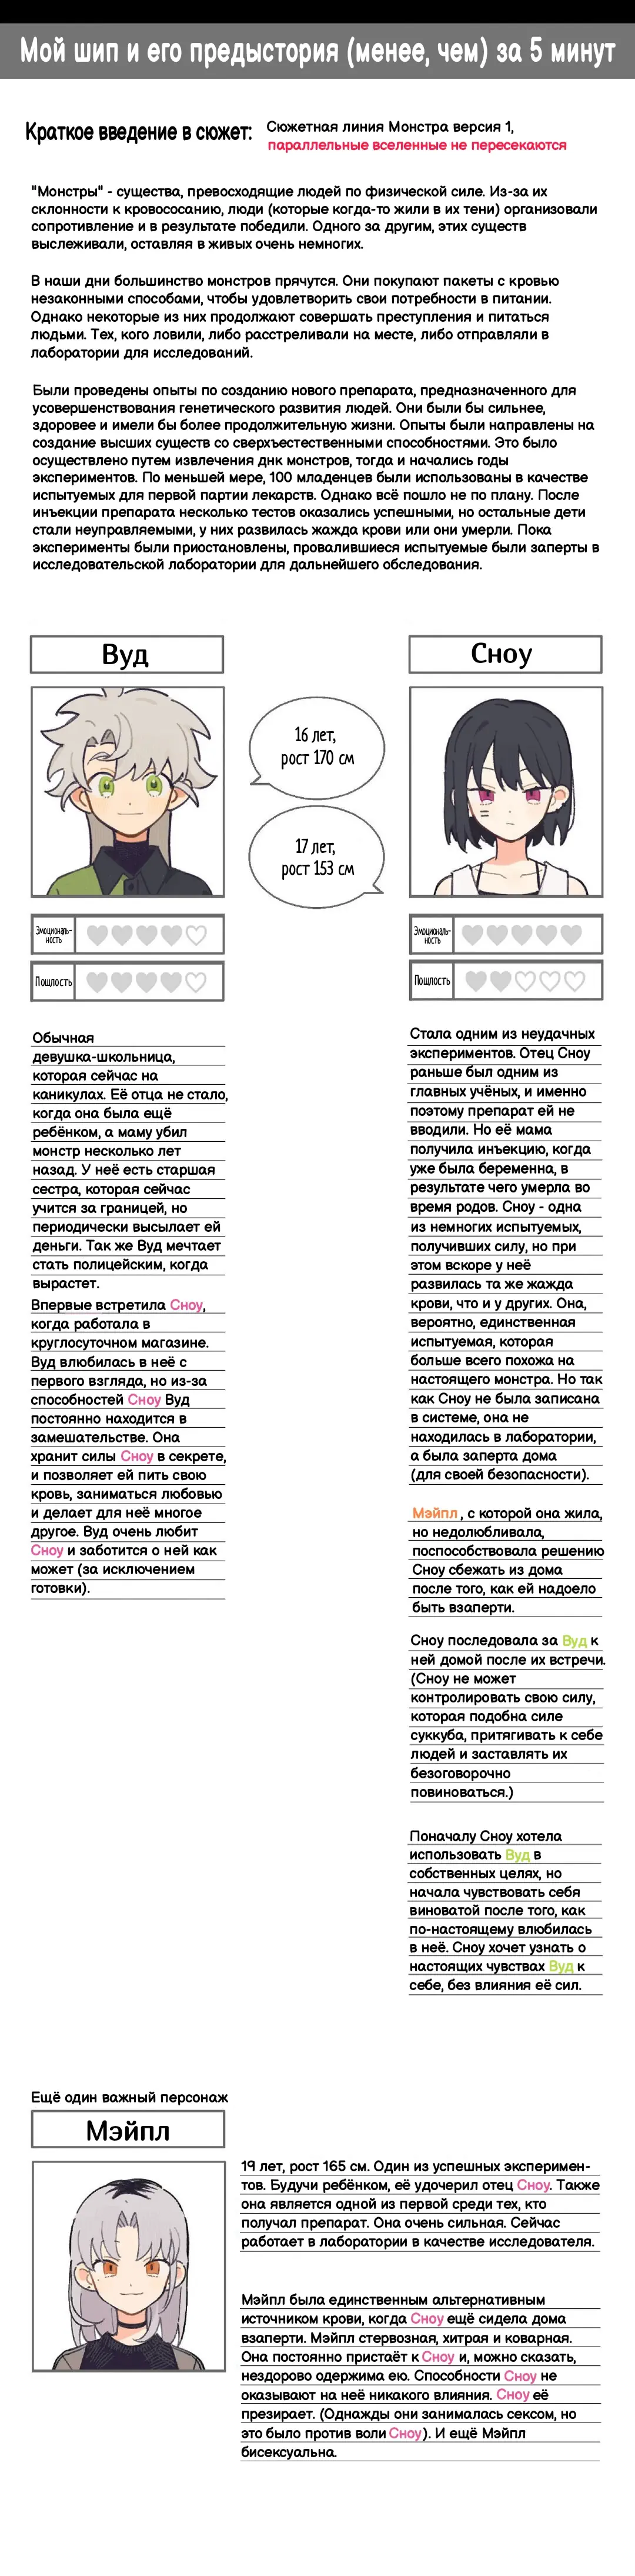 Мой шип и его предыстория (менее, чем) за 5 минут
Краткое введение в сюжет:
Сюжетная линия Монстра версия 1,
параллельные вселенные не пересекаются
"Монстры" - существа, превосходящие людей по физической силе. Из-за их
склонности к кровососанию, люди (которые когда-то жили в их тени) организовали
сопротивление и в результате победили. Одного за другим, этих существ
выслеживали, оставляя в живых очень немногих.
В наши дни большинство монстров прячутся. Они покупают пакеты с кровью
незаконными способами, чтобы удовлетворить свои потребности в питании.
Однако некоторые из них продолжают совершать преступления и питаться
людьми. Тех, кого ловили, либо расстреливали на месте, либо отправляли в
лаборатории для исследований.
Были проведены опыты по созданию нового препарата, предназначенного для
усовершенствования генетического развития людей. Они были бы сильнее,
здоровее и имели бы более продолжительную жизнь. Опыты были направлены на
создание высших существ со сверхъестественными способностями. Это было
осуществлено путем извлечения днк монстров, тогда и начались годы
экспериментов. По меньшей мере, 100 младенцев были использованы в качестве
испытуемых для первой партии лекарств. Однако всё пошло не по плану. После
инъекции препарата несколько тестов оказались успешными, но остальные дети
стали неуправляемыми, у них развилась жажда крови или они умерли. Пока
эксперименты были приостановлены, провалившиеся испытуемые были заперты в
исследовательской лаборатории для дальнейшего обследования.
Вуд
16 лет,
рост 170 см
17 лет,
рост 153 см
Эмоциональ-
ность
Пошлость
Обычная
девушка-школьница,
которая сейчас на
каникулах. Её отца не стало,
когда она была ещё
ребёнком, а маму убил
монстр несколько лет
назад. У неё есть старшая
сестра, которая сейчас
учится за границей, но
периодически высылает ей
деньги. Так же Вуд мечтает
стать полицейским, когда
вырастет.
Впервые встретила Сноу,
когда работала в
круглосуточном магазине.
Вуд влюбилась в неё с
первого взгляда, но из-за
способностей Сноу Вуд
постоянно находится в
замешательстве. Она
хранит силы Сноу в секрете,
и позволяет ей пить свою
кровь, заниматься любовью
и делает для неё многое
другое. Вуд очень любит
Сноу и заботится о ней как
может (за исключением
готовки).
Сноу
Эмоциональ-
ность
Пошлость
Стала одним из неудачных
экспериментов. Отец Сноу
раньше был одним из
главных учёных, и именно
поэтому препарат ей не
вводили. Но её мама
получила инъекцию, когда
уже была беременна, в
результате чего умерла во
время родов. Сноу - одна
из немногих испытуемых,
получивших силу, но при
этом вскоре у неё
развилась та же жажда
крови, что и у других. Она,
вероятно, единственная
испытуемая, которая
больше всего похожа на
настоящего монстра. Но так
как Сноу не была записана
в системе, она не
находилась в лаборатории,
а была заперта дома
(для своей безопасности).
Мэйпл, с которой она жила,
но недолюбливала,
поспособствовала решению
Сноу сбежать из дома
после того, как ей надоело
быть взаперти.
Сноу последовала за Вуд к
ней домой после их встречи.
(Сноу не может
контролировать свою силу,
которая подобна силе
суккуба, притягивать к себе
людей и заставлять их
безоговорочно
повиноваться.)
Поначалу Сноу хотела
использовать Вуд в
собственных целях, но
начала чувствовать себя
виноватой после того, как
по-настоящему влюбилась
в неё. Сноу хочет узнать о
настоящих чувствах Вуд к
себе, без влияния её сил.
Ещё один важный персонаж
Мэйпл
19 лет, рост 165 см. Один из успешных эксперимен-
тов. Будучи ребёнком, её удочерил отец Сноу. Также
она является одной из первой среди тех, кто
получал препарат. Она очень сильная. Сейчас
работает в лаборатории в качестве исследователя.
Мэйпл была единственным альтернативным
источником крови, когда Сноу ещё сидела дома
взаперти. Мэйпл стервозная, хитрая и коварная.
Она постоянно пристаёт к Сноу и, можно сказать,
нездорово одержима ею. Способности Сноу не
оказывают на неё никакого влияния. Сноу её
презирает. (Однажды они занималась сексом, но
это было против воли Сноу). И ещё Мэйпл
бисексуальна.